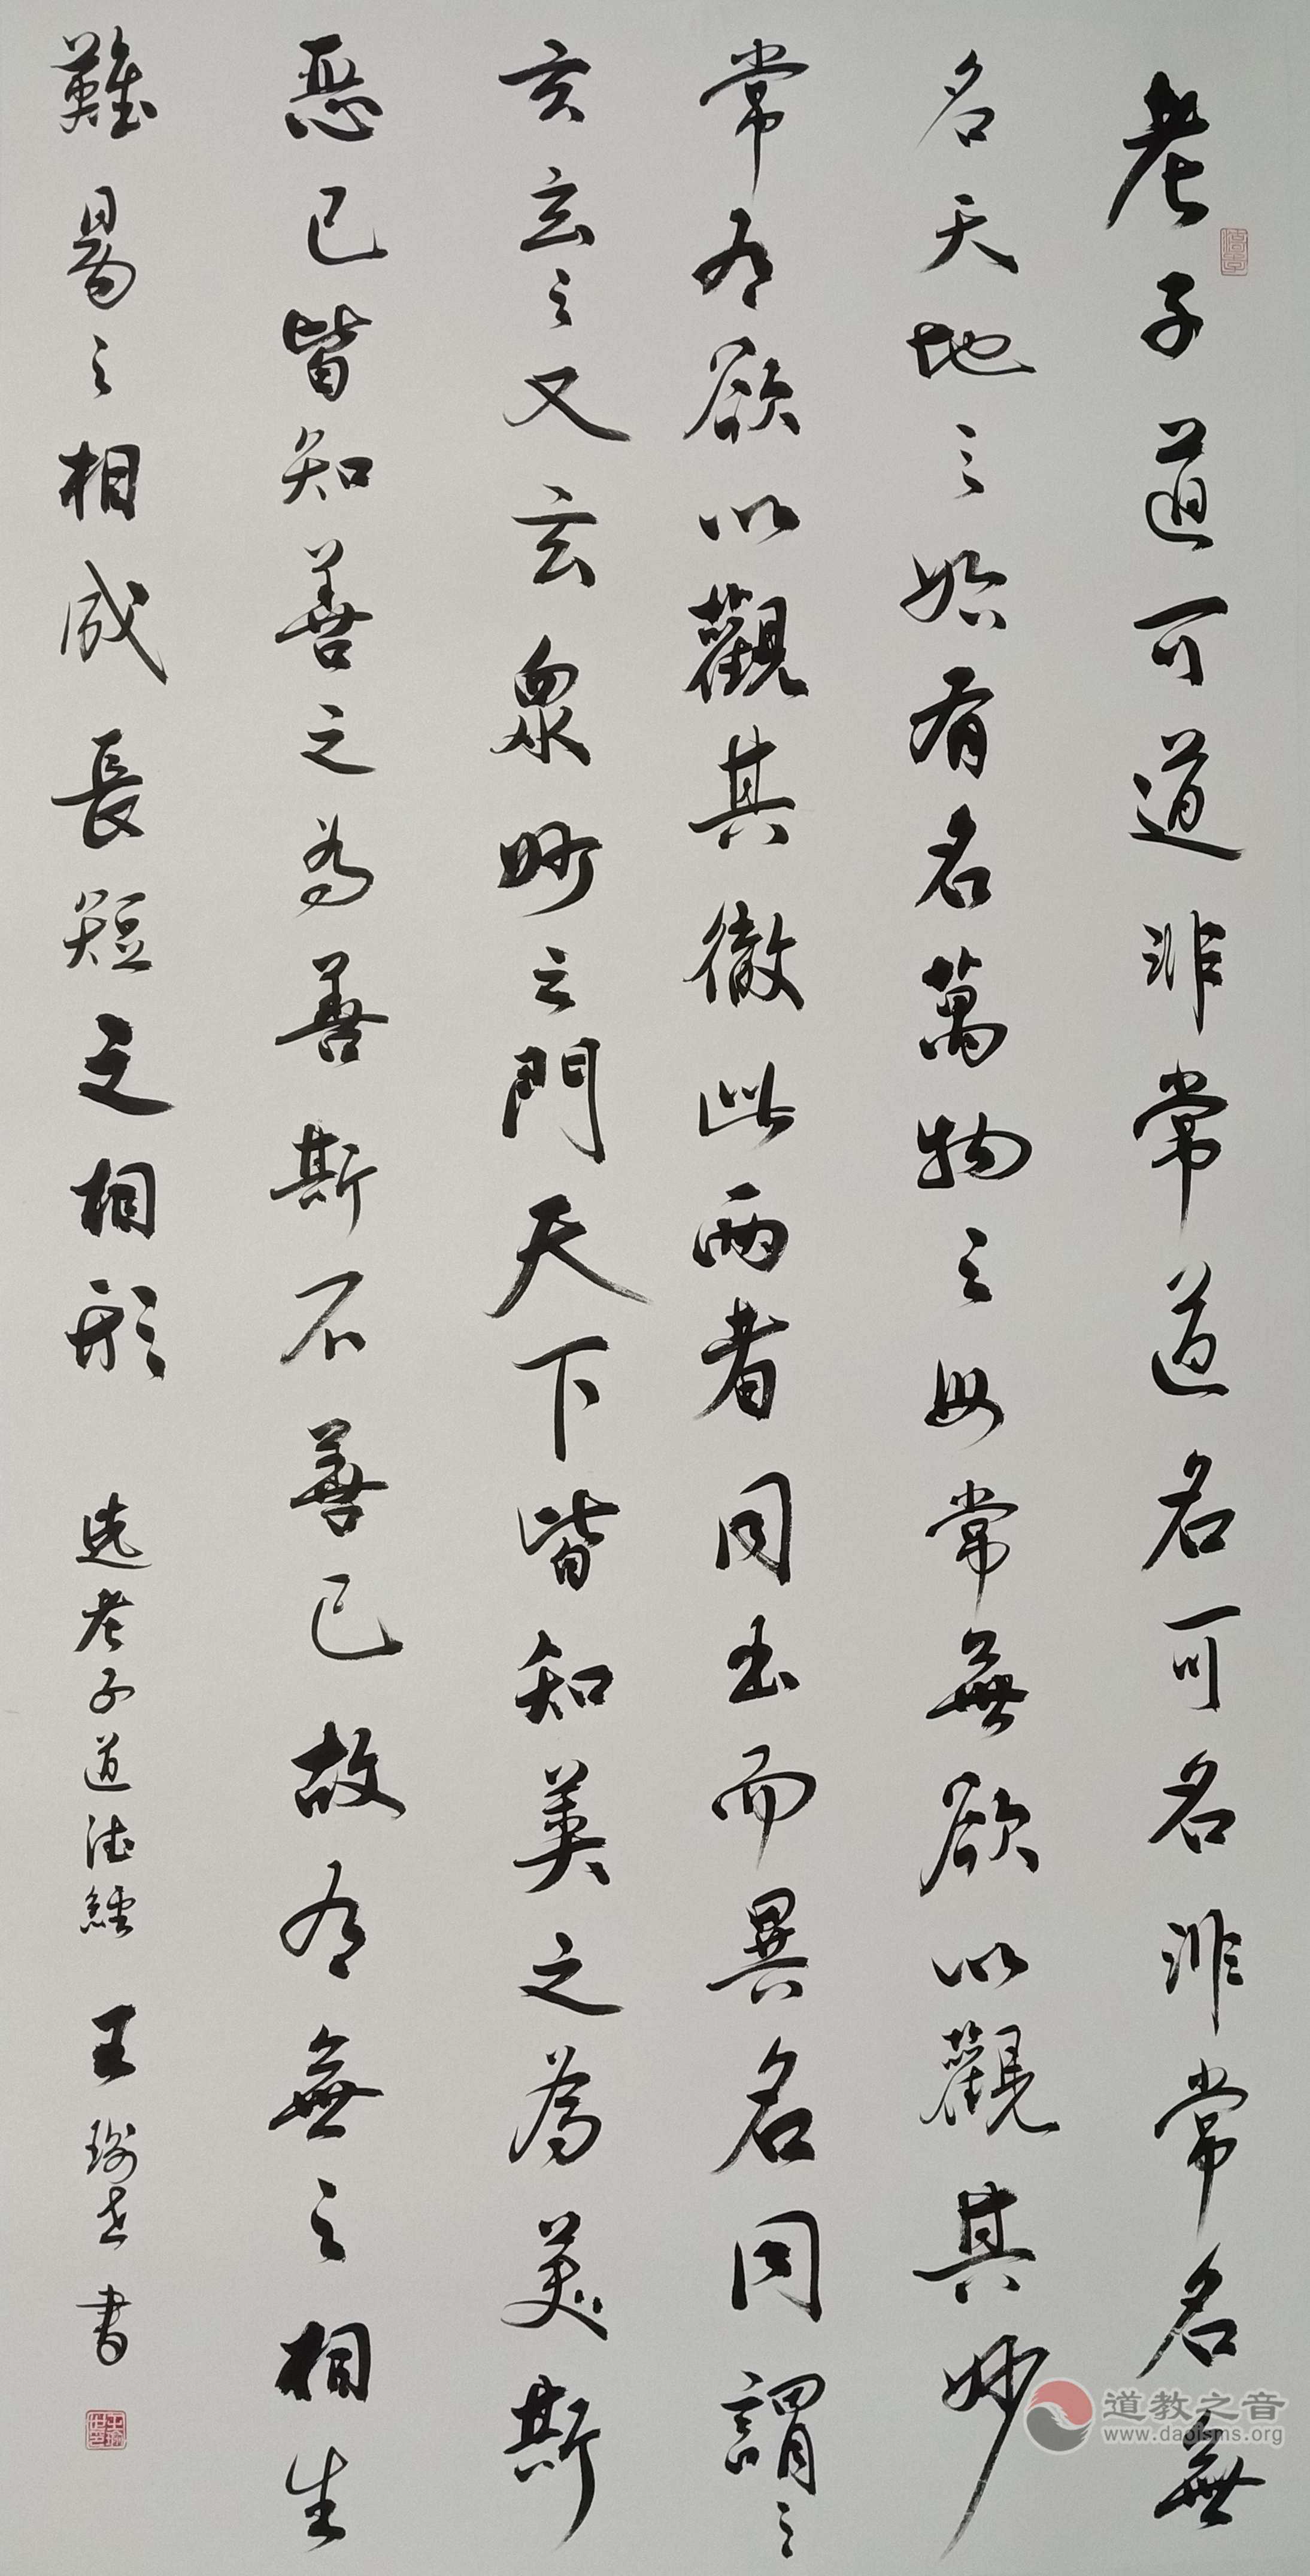 老子道可道非常道名可名非常名無
名天地之始有名萬物之母常無欲以觀其妙
常有欲以觀其徼此兩者同出而異名同謂之
玄玄之又玄眾妙之門天下皆知美之為美斯
惡已皆知善之為善斯不善已故有無之相生
難易之相成長短之相形
选老子道德經 王瑜世書
道教之音
www.daoisms.org